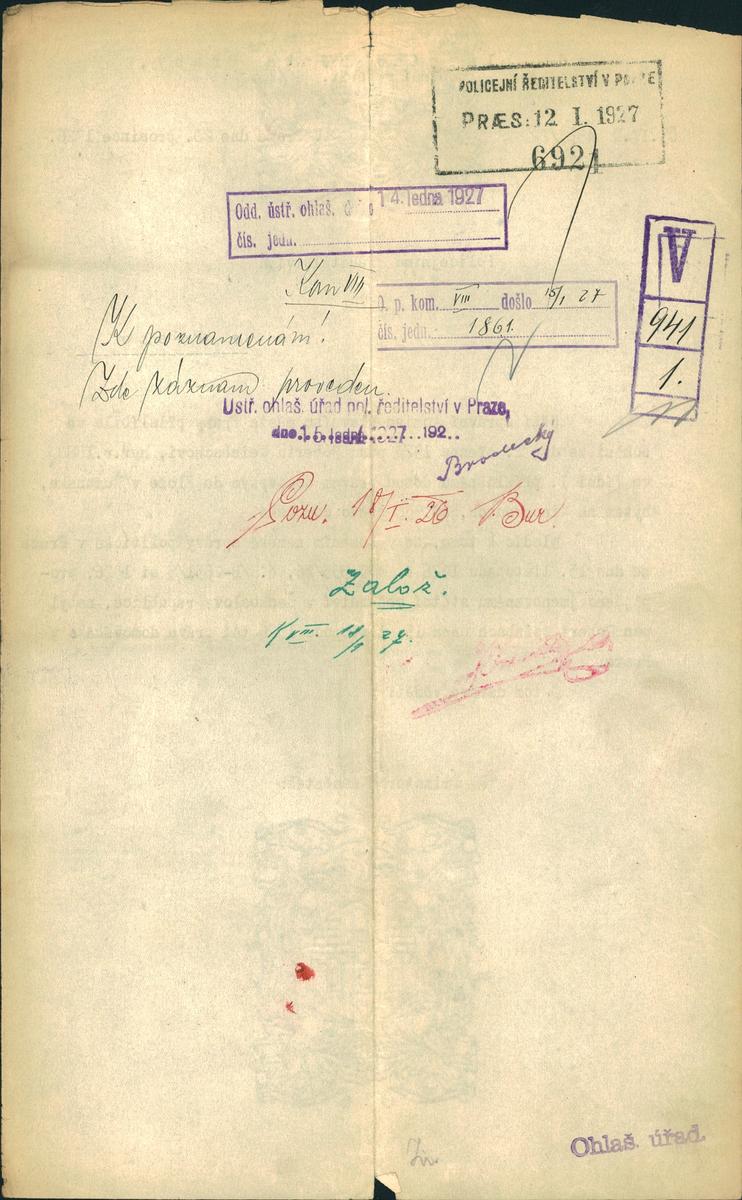 POLICEJNÍ ŘEDITELSTVÍ V PRAZE
PRÆS: 12 I. 1927
6921
Odd. ústř. ohlaš. 14. ledna 1927
čís. jedn.
V
941
1.
Kom VIII
O. p. kom. VIII došlo 15/I 27
čís. jedn. 1861.
K poznamenání!
Zde záznam proveden.
Ústř. ohlaš. úřad pol. ředitelství v Praze,
dne 15. ledna 1927 192
Brodecký
Pozn. 18/I. 26 Bur.
Založ.
K VIII. 18/1 27.
Ohlaš. úřad.